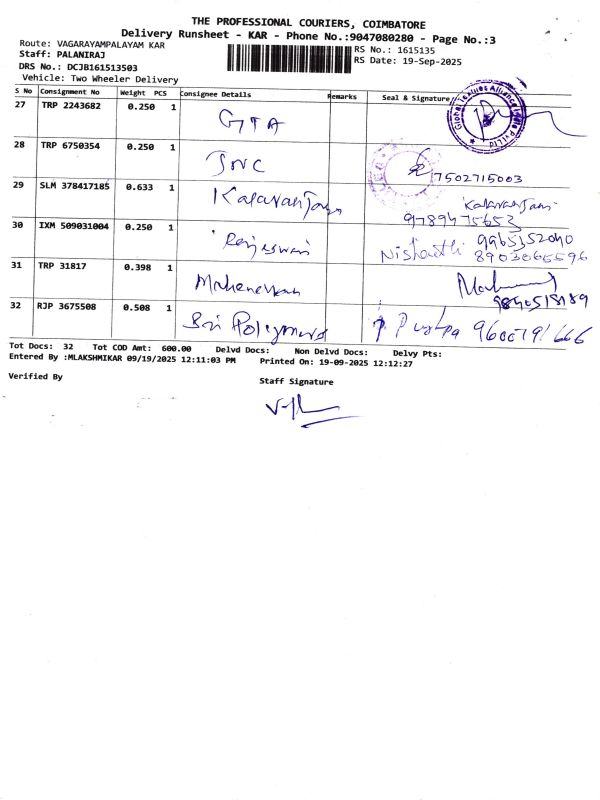 THE PROFESSIONAL COURIERS, COIMBATORE
Delivery Runsheet - KAR - Phone No.:9047080280 - Page No.:3
Route: VAGARAYAMPALAYAM KAR
RS No.: 1615135
Staff: PALANIRAJ
RS Date: 19-Sep-2025
DRS No.: DCJB161513503
Vehicle: Two Wheeler Delivery
S No Consignment No Weight PCS Consignee Details Remarks Seal & Signature
27 TRP 2243682 0.250 1 GTA
28 TRP 6750354 0.250 1 7502715003
29 SLM 378417185 0.633 1
9789475652
30 IXM 509031004 0.250 1 9965352040
8903065596
31 TRP 31817 0.398 1
32 RJP 3675508 0.508 1 Sri
Tot Docs: 32 Tot COD Amt: 600.00 Delvd Docs: Non Delvd Docs: Delvy Pts:
Entered By :MLAKSHMIKAR 09/19/2025 12:11:03 PM Printed On: 19-09-2025 12:12:27
Verified By
Staff Signature